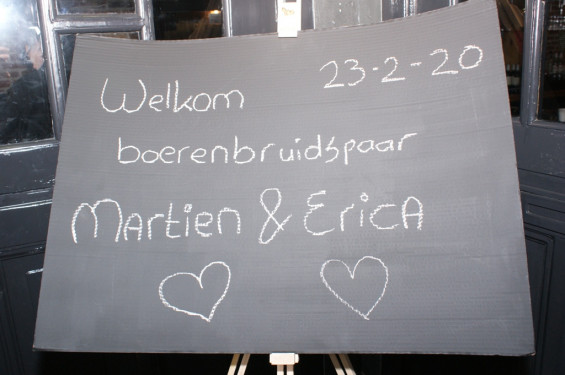 23-2-20
Welkom
boerenbruidspaar
Martien & Erica